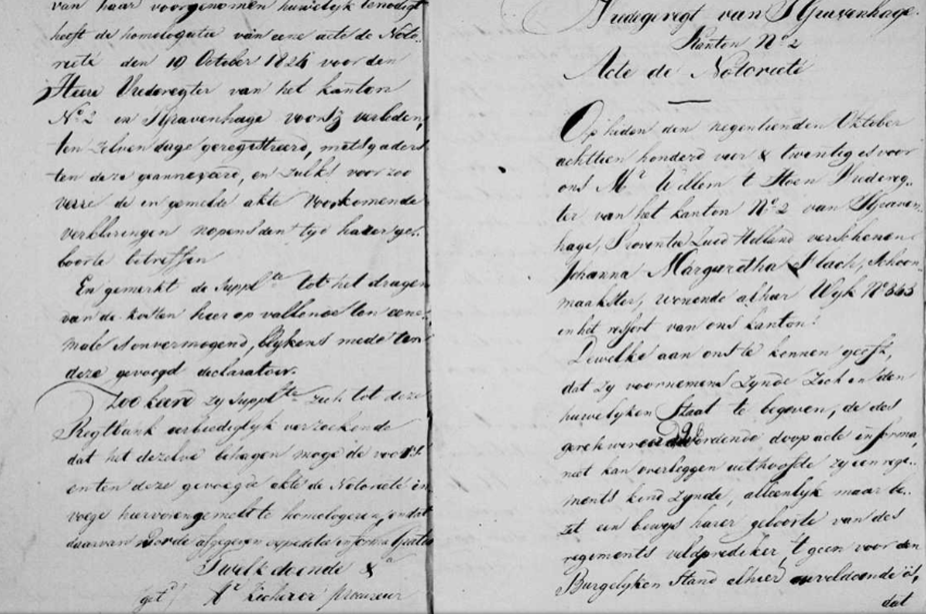 van haar voorgenomen huwelijk benodigt
heeft de homologatie van eene acte de Noto-
rieté den 19 October 1824 voor den
Heere Vrederegter van het kanton
No 2 in 'sGravenhage voorn verleden,
ten zelven dage geregistreerd, mitsgaders
ten deze geannexeerd, en zulks voor zoo
verre de in gemelde akte voorkomende
verklaringen nopens den tijd harer ge-
boorte betreffen
En gemerkt de Supplte tot het dragen
van de kosten hier op vallende ten eene-
male is onvermogend, blijkens mede ten
deze gevoegd declaratoir.
Zoo keerd zy Supplte zich tot deze
Regtbank eerbiediglyk verzoekende
dat het dezelve behagen moge de voorsz.
en ten deze gevoegde akte de Notorieté in
voege hiervoren gemeld te homologeren, en dat
daarvan worde afgegeven expeditie in forma Gratis
'T welk doende &a
get) procureur
Vredegeregt van 'sGravenhage.
Kanton No 2
Acte de Notorieté
Op heden den negentienden October
achttien honderd vier & twintig is voor
ons Mr Willem 't Hoen Vredereg-
ter van het kanton No 2 van 'sGraven-
hage, Provintie Zuid Holland verschenen
Johanna Margaretha Slach, Schoon-
maakster, wonende alhier Wyk No 343
in het ressort van ons kanton!
Dewelke aan ons te kennen geeft,
dat zy voornemens zynde zich in den
huwelyken Staat te begeven, de des
doop acte in forma,
niet kan overleggen uit hoofde zy een rege-
ments kind zynde, alleenlyk maar be-
zit een bewys harer geboorte van des
regiments veldprediker, 't geen voor den
Burgelyken Stand alhier onvoldoende is,
dat